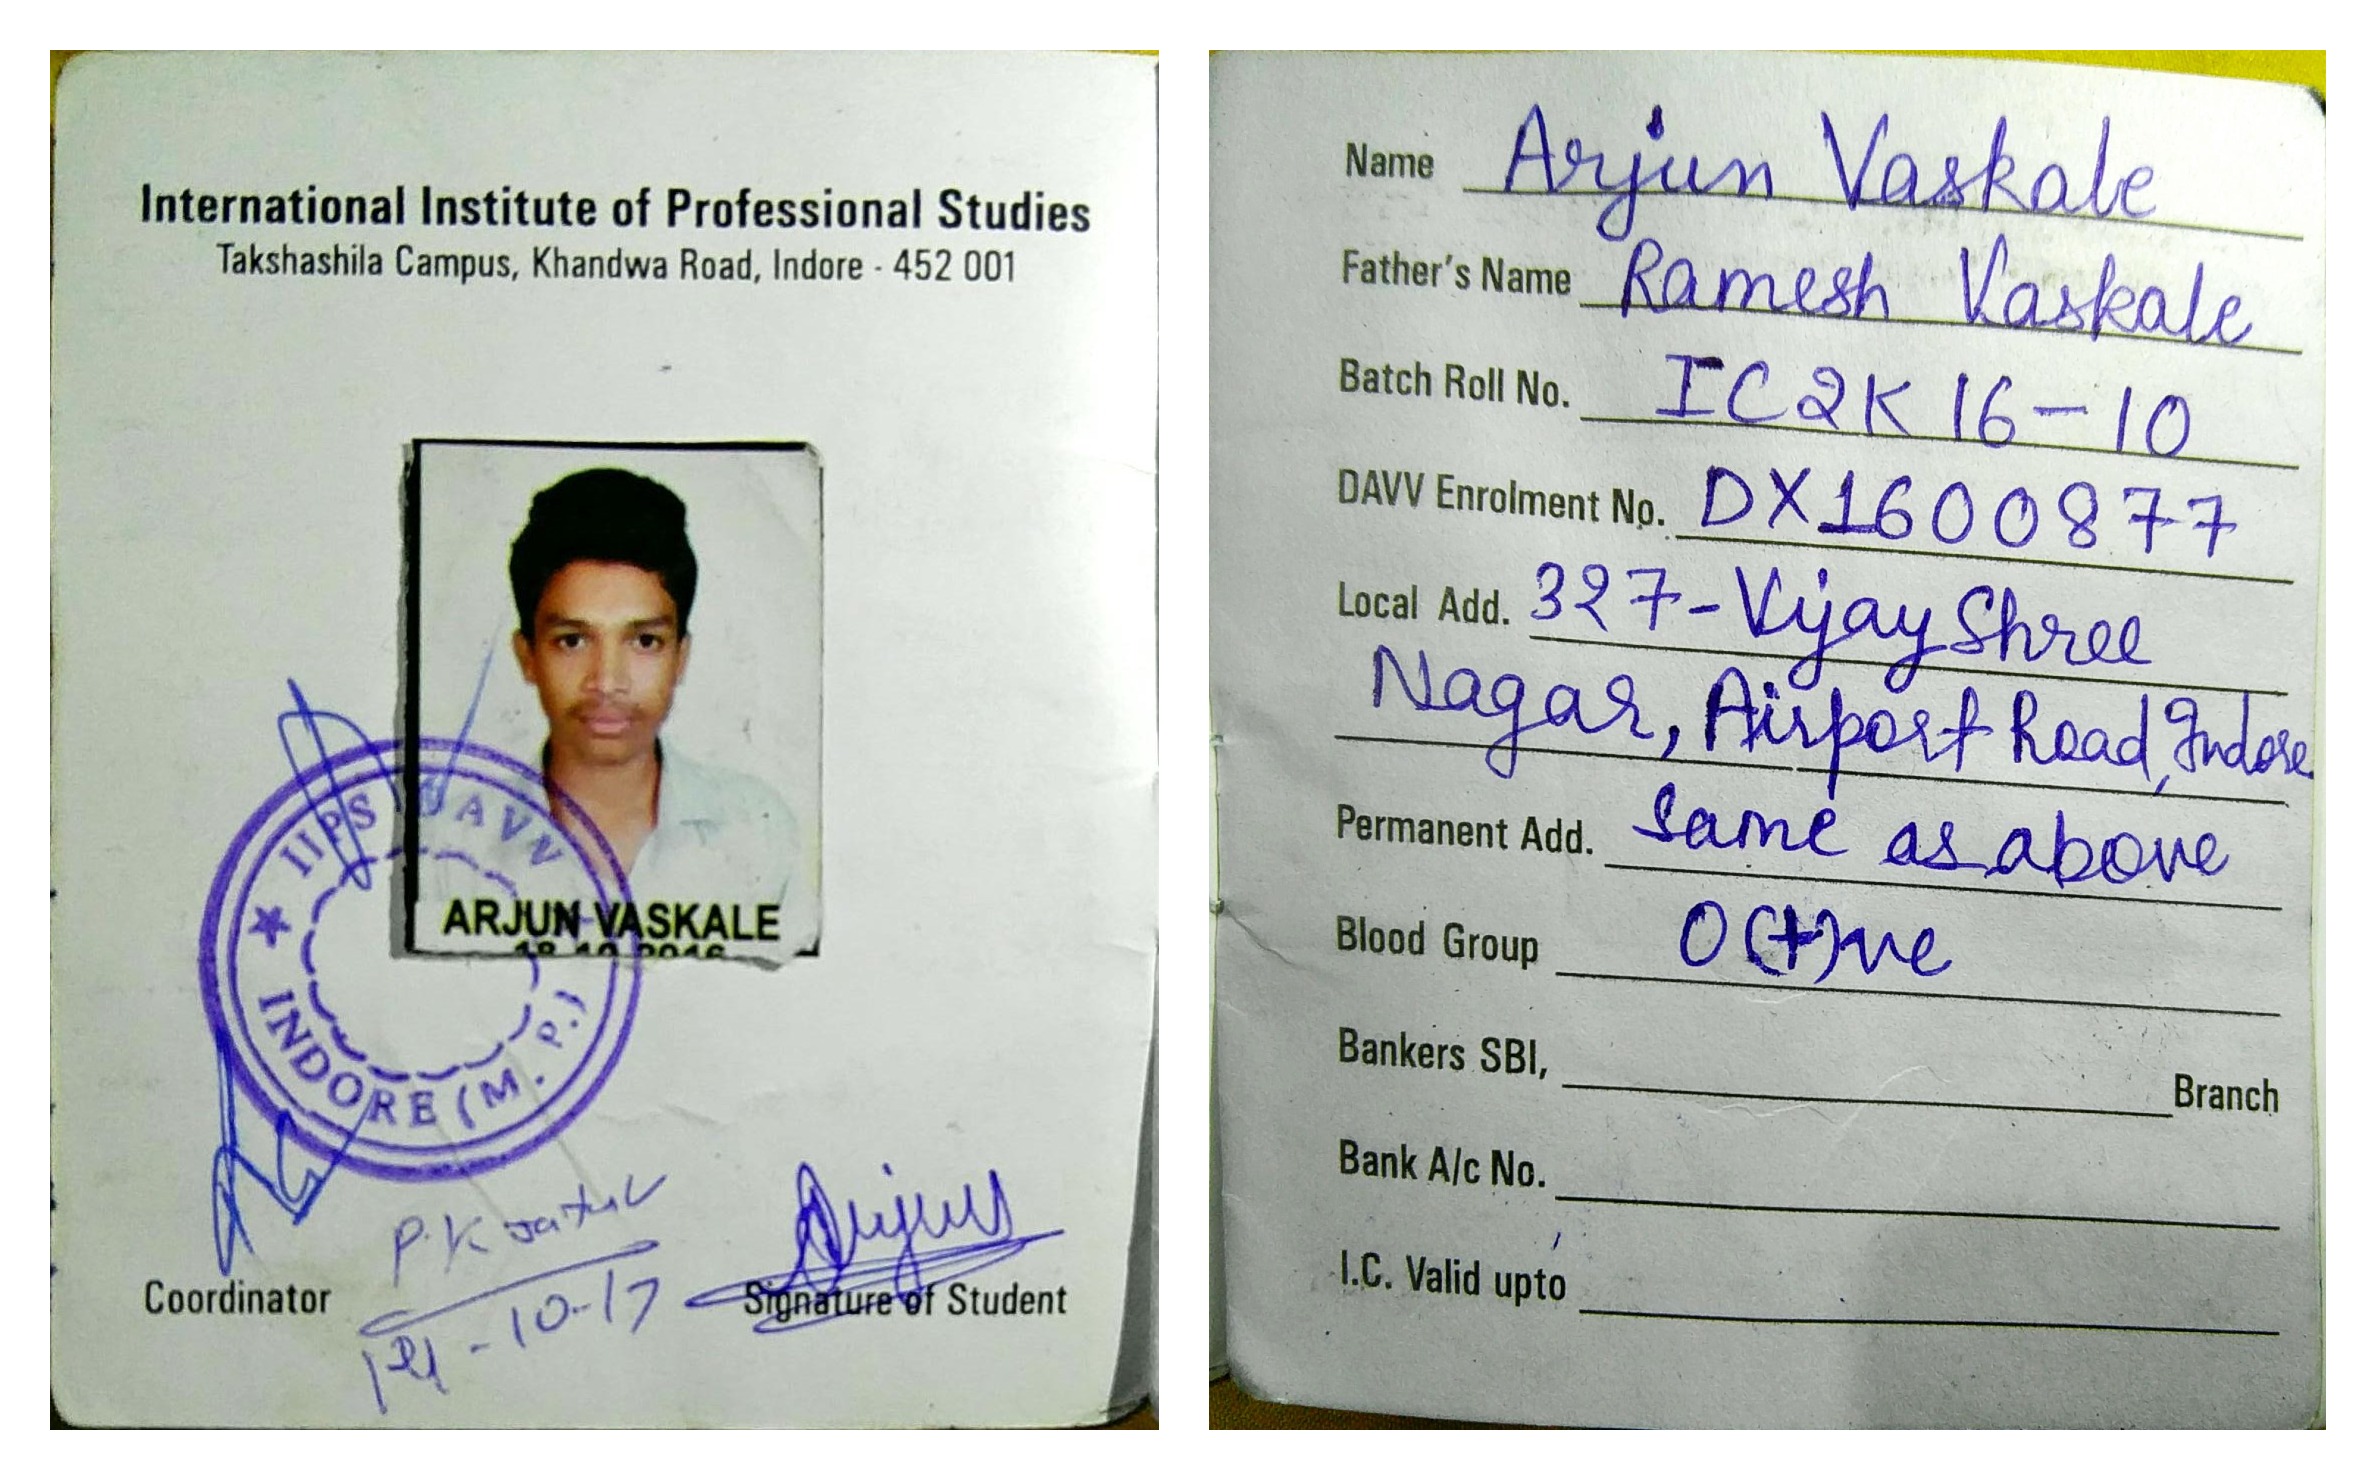 International Institute of Professional Studies
Takshashila Campus, Khandwa Road, Indore - 452 001
ARJUN VASKALE
18-10-2016
IIPS DAVV
INDORE (M.P.)
P.K
-10-17
Arjun
Coordinator
Signature of Student
Name Arjun Vaskale
Father's Name Ramesh Vaskale
Batch Roll No. IC2K16-10
DAVV Enrolment No. DX1600877
Local Add. 327-Vijay Shree
Nagar, Airport Road, Indore
Permanent Add. Same as above
Blood Group O(+)ve
Bankers SBI, Branch
Bank A/c No.
I.C. Valid upto